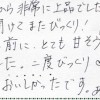 から非常に上品でした
開けてまたびっくり。
前に、とても甘そう
た。二度びっくり
おいしかったです。よ